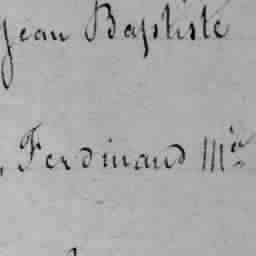 Jean Baptiste
Ferdinand M.ie